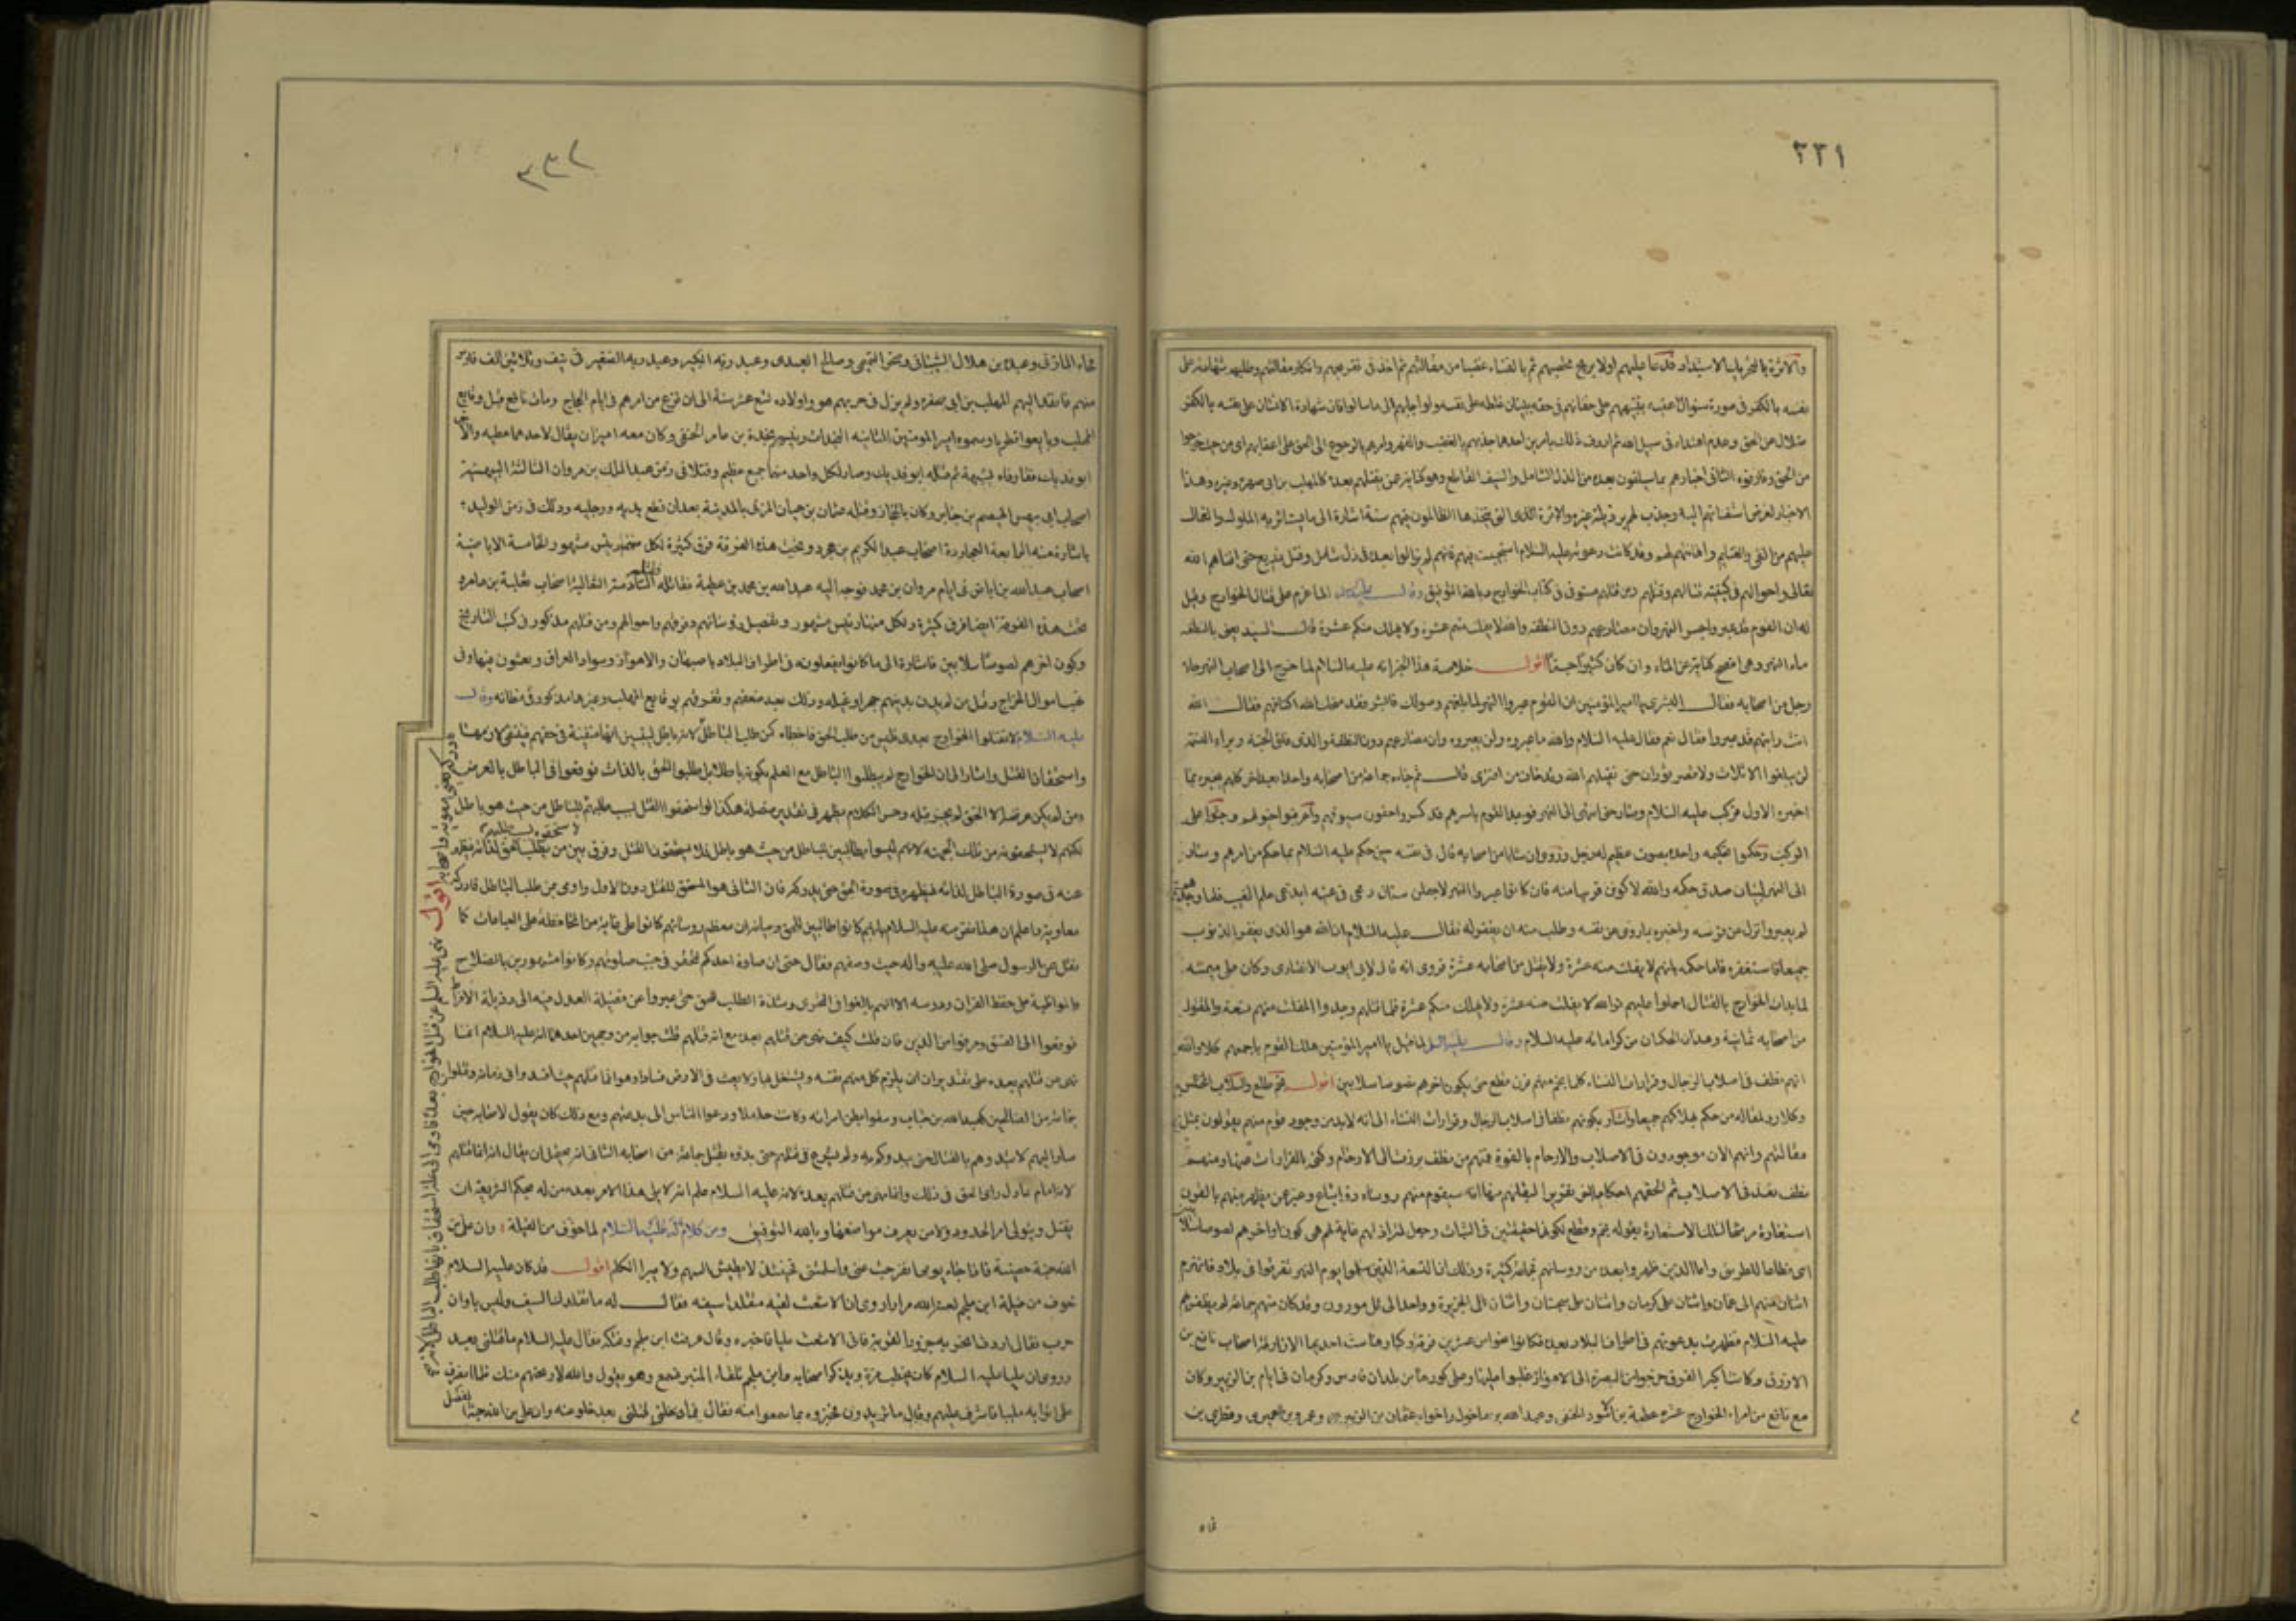 ٢٢١
والاثرة بالتحريك الاستبداد قد دعا عليهم اولا بريح تحصبهم ثم بالفناء غضبا من مقالتهم ثم اخذ فى تقريعهم وانكار مقالتهم وطلبهم شهادته على
نفسه بالكفر فى صورة سؤال اعقبه بتنبيههم على خطائهم فى حقه ببيان غلطه على نفسه ولو اجابهم الى ما سالوا فان شهادة الانسان على نفسه بالكفر
ضلال عن الحق وعدم اهتداء فى سبيل الله ثم اردف ذلك بامرين احدهما جذبهم بالغضب والقهر وامرهم بالرجوع الى الحق على اعقابهم اى من حيث خرجوا
من الحق وفارقوه الثانى اخبارهم بما سيلقون بعده من الذل الشامل والسيف القاطع وهو كناية عمن يقتلهم بعده كالمهلب بن ابى صفرة وغيره وهذا
الاخبار لغرض استفائهم اليه وجذب لهم برذيلة غيره والاثرة اللتى يتخذها الظالمون فيهم سنة اشارة الى ما يستاثر به الملوك والعمال
عليهم من الفئ والغنايم واهانتهم لهم وقد كانت دعوته عليه السلام استجيبت فيهم فانهم لم يزالوا بعده فى ذل شامل وقتل ذريع حتى افناهم الله
تعالى واحوالهم فى كيفية قتالهم وقتلهم ومن قتلهم مستوفى فى كتاب الخوارج وبالله التوفيق وقال عليه السلام لما عزم على قتال الخوارج وقيل
له ان القوم قد عبروا جسر النهروان مصارعهم دون النطفة والله لا يفلت منهم عشرة ولا يهلك منكم عشرة قال السيد يعنى بالنطفة
ماء النهر وهى افصح كناية عن الماء وان كان كثيرا جما اقول خلاصة هذا الخبر انه عليه السلام لما خرج الى اصحاب النهر جاءه
رجل من اصحابه فقال البشرى يا امير المؤمنين ان القوم عبروا النهر لما بلغهم وصولك فابشر فقد منحك الله اكتافهم فقال الله
انت رايتهم قد عبروا فقال نعم فقال عليه السلام والله ما عبروه ولن يعبروه وان مصارعهم دون النطفة والذى فلق الحبة وبرأ النسمة
لن يبلغوا الاثلاث ولا قصر بوران حتى يقتلهم الله وقد خاب من افترى قال ثم جاءه جماعة من اصحابه واحدا بعد اخر كلهم يخبره بما
اخبره الاول فركب عليه السلام وسار حتى انتهى الى النهر فوجد القوم باسرهم قد كسروا جفون سيوفهم وعرقبوا خيولهم وجثوا على
الركب وحكموا تحكيمة واحدة بصوت عظيم له زجل وروى ان شابا من اصحابه قال فى نفسه حين حكم عليه السلام بما حكم من امرهم وسار
الى النهر لبيان صدق حكمه والله لاكونن قريبا منه فان كانوا عبروا النهر لاجعلن سنان رمحى فى عينه ايدعى علم الغيب فلما وجدهم
لم يعبروا نزل عن فرسه واخبره بما روى عن نفسه وطلب منه ان يغفر له فقال عليه السلام ان الله هو الذى يغفر الذنوب
جميعا فاستغفره فاما حكمه بانهم لا يفلت منه عشرة ولا يقتل من اصحابه عشرة فروى انه قال لابى ايوب الانصارى وكان على ميمنته
لما بدات الخوارج بالقتال احملوا عليهم فوالله لا يفلت منه عشرة ولا يهلك منكم عشرة فلما قتلهم وجدوا المفلت منهم تسعة والمقتول
من اصحابه ثمانية وهذان الحكمان من كراماته عليه السلام وقال عليه السلام لما قيل يا امير المؤمنين هلك القوم باجمعهم كلا والله
انهم نطف فى اصلاب الرجال وقرارات النساء كلما نجم منهم قرن قطع حتى يكون اخرهم لصوصا سلابين اقول نجم طلع والسلاب المختلس
وكلا رد لمقاله من حكم بهلاكهم جميعا واشار بكونهم نطفا فى اصلاب الرجال وقرارات النساء الى انه لابد من وجود قوم منهم يقولون بمثل
مقالتهم وانهم الان موجودون فى الاصلاب والارحام بالقوة فمنهم من نطف برزت الى الارحام وكنى بالقرارات عنها ومنهم
نطف بعد فى الاصلاب ثم الحقهم احكاما اخر تقريرا لبقائهم منها انه سيقوم منهم روساء ذو اتباع وعبر عن يظهر منهم بالقرن
استعارة مرشحا لتلك الاستعارة بقوله نجم وقطع لكونهما حقيقتين فى النبات وجعل لترادفهم غاية لهم هى كون اواخرهم لصوصا سلابين
اى قطاعا للطريق واما الذين ظهروا بعده من روسائهم فجماعة كثيرة وذلك ان التسعة الذين سلموا يوم النهر تفرقوا فى بلاد فانهزم
اثنان منهم الى عمان واثنان على كرمان واثنان على سجستان واثنان الى الجزيرة وواحد الى تل مورون وقد كان منهم جماعة لم يظفر بهم
عليه السلام فظهرت بدعوتهم فى اطراف البلاد بعده فكانوا نحوا من عشرين فرقة وكبارها ست احديها الازارقة اصحاب نافع بن
الازرق وكانت اكبر الفرق خرجوا من البصرة الى الاهواز فغلبوا عليها وعلى كورها من بلدان فارس وكرمان فى ايام بن الزبير وكان
مع نافع من امراء الخوارج عشرة عطية بن الاسود الحنفى وعبد الله بن ماخول واخواه عثمان بن الزبير وعمرو بن عمير وقطرى بن
٢٣٢
فجاءه المازنى وعبيدة بن هلال الشيبانى وصخر التميمى وصالح العبدى وعبد ربه الكبير وعبد ربه الصغير فى نيف وثلاثين الف فارس
منهم فانفذ اليهم المهلب بن ابى صفرة ولم يزل فى حربهم هو واولاده تسع عشرة سنة الى ان فرغ من امرهم فى ايام الحجاج ومات نافع قبل وقايع
المهلب وبايعوا قطريا وسموه امير المومنين الثانية النجدات ورئيسهم نجدة بن عامر الحنفى وكان معه اميران يقال لاحدهما عطية والاخر
ابو فديك ففارقاه لشبهة ثم قتله ابو فديك وصار لكل واحد منهما جمع عظيم وقتلا فى زمن عبد الملك بن مروان الثالثة البيهسية
اصحاب ابى بيهس الهيصم بن جابر وكان بالحجاز وقتله عثمان بن حيان المزنى بالمدينة بعد ان قطع يديه ورجليه وذلك فى زمن الوليد
باشارة منه الرابعة العجاردة اصحاب عبد الكريم بن عجرد وتحت هذه الفرقة فرق كثيرة لكل منهم رئيس مشهور والخامسة الاباضية
اصحاب عبد الله بن اباض فى ايام مروان بن محمد فوجه اليه عبد الله بن محمد بن عطية فقاتله فقتله السادسة الثعالبة اصحاب ثعلبة بن عامر و
تحت هذه الفرقة ايضا فرق كثيرة ولكل منها رئيس مشهور وتفصيل رؤسائهم وفرقهم واحوالهم ومن قتلهم مذكور فى كتب التاريخ
وكون اخرهم لصوصا سلابين فاشارة الى ما كانوا يفعلونه فى اطراف البلاد باصبهان والاهواز وسواد العراق ويعيثون فيها وفى
غيبا اموال الخراج وقتل من لم يدن بدينهم جهرا وغيلة وذلك بعد ضعفهم وتفرقهم بوقايع المهلب وغيرها مذكور فى مظانه وقال
عليه السلام لا تقتلوا الخوارج بعدى فليس من طلب الحق فاخطاه كمن طلب الباطل
واستحقاق القتل واشار الى ان الخوارج لم يطلبوا الباطل مع العلم بكونه باطلا بل طلبوا الحق بالذات فوقعوا فى الباطل بالعرض
ومن لم يكن غرضه الا الحق لم يجز قتله وحسن الكلام يظهر فى تقدير متصلة هكذا لو استحقوا القتل بسبب طلبهم للباطل من حيث هو باطل
لكنهم لا يستحقونه من تلك الجهة لانهم ليسوا بطالبين للباطل من حيث هو باطل فلا يستحقون القتل وفرق بين من يطلب الحق لذاته فيظهر
عنه فى صورة الباطل لذاته فيظهره فى صورة الحق حتى يدركه فان الثانى هو المستحق للقتل دون الاول واومى بمن طلب الباطل فادركه الى
معاوية واعلم ان هذا نص منه عليه السلام بانهم كانوا طالبين للحق وبيانه ان معظم روسائهم كانوا على غاية من المحافظة على العبادات كما
نقل عن الرسول صلى الله عليه واله حيث وصفهم فقال حتى ان صلوة احدكم لتحقر فى جنب صلوتهم وكانوا مشهورين بالصلاح
والمواظبة على حفظ القران ودرسه الا انهم بالغوا فى التحرى وشدة الطلب للحق حتى عبروا عن فضيلة العدل فيه الى رذيلة الافراط
فوقعوا فى الفسق ومرقوا من الدين فان قلت كيف نهى عن قتلهم بعده مع انه قتلهم قلت جوابه من وجهين احدهما انه عليه السلام انما
نهى عن قتلهم بعده على تقدير ان يلزم كل منهم نفسه ويشتغل بها ولا يعيث فى الارض فسادا وهو انما قتلهم حيث افسدوا فى زمانه وقتلوا
جماعة من الصالحين كعبد الله بن خباب وشقوا بطن امراته وكانت حاملا ودعوا الناس الى بدعتهم ومع ذلك كان يقول لاصحابه حين
سار اليهم لا تبدؤهم بالقتال حتى يبدؤكم به ولم يشرع فى قتلهم حتى بدؤه بقتل جماعة من اصحابه الثانى انه يحتمل ان يقال انه انما قتلهم
لانه امام عادل راى الحق فى ذلك وانما نهى عن قتلهم بعده لانه عليه السلام علم انه لا يلى هذا الامر بعده من له بحكم الشريعة ان
يقتل ويتولى امر الحدود ولا من يعرف مواضعها وبالله التوفيق ومن كلام له عليه السلام لما خوف من الغيلة وان على من
الله جنة حصينة فاذا جاء يومى انفرجت عنى واسلمتنى فحينئذ لا يطيش السهم ولا يبرأ الكلم اقول قد كان عليه السلام
خوف من غيلة ابن ملجم لعنه الله مرارا روى ان الاشعث لقيه متقلدا سيفه فقال له ما تقلدك السيف وليس باوان
حرب فقال اردت انحر به جزور القرية فاتى الاشعث عليا فاخبره وقال عرفت ابن ملجم وفتكه فقال عليه السلام ما قتلنى بعد
وروى ان عليا عليه السلام كان يخطب مرة ويذكر اصحابه وابن ملجم تلقاء المنبر فسمع وهو يقول والله لاريحنهم منك فلما انصرف
على اتوا به ملببا فاشرف عليهم وقال ما تريدون فخبروه بما سمعوا منه فقال فما قتلنى بعد خلوا عنه وان على من الله جنة